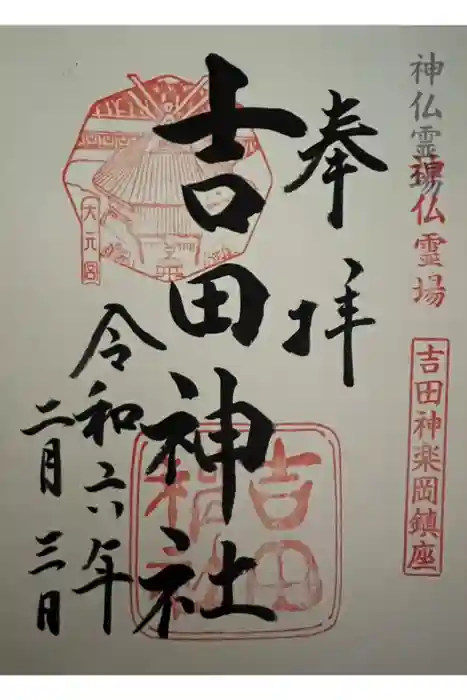 神仏霊場
仏霊場
吉田神楽岡鎮座
奉拝
吉田神社
大元宮
吉田
神社
令和六年
二月三日